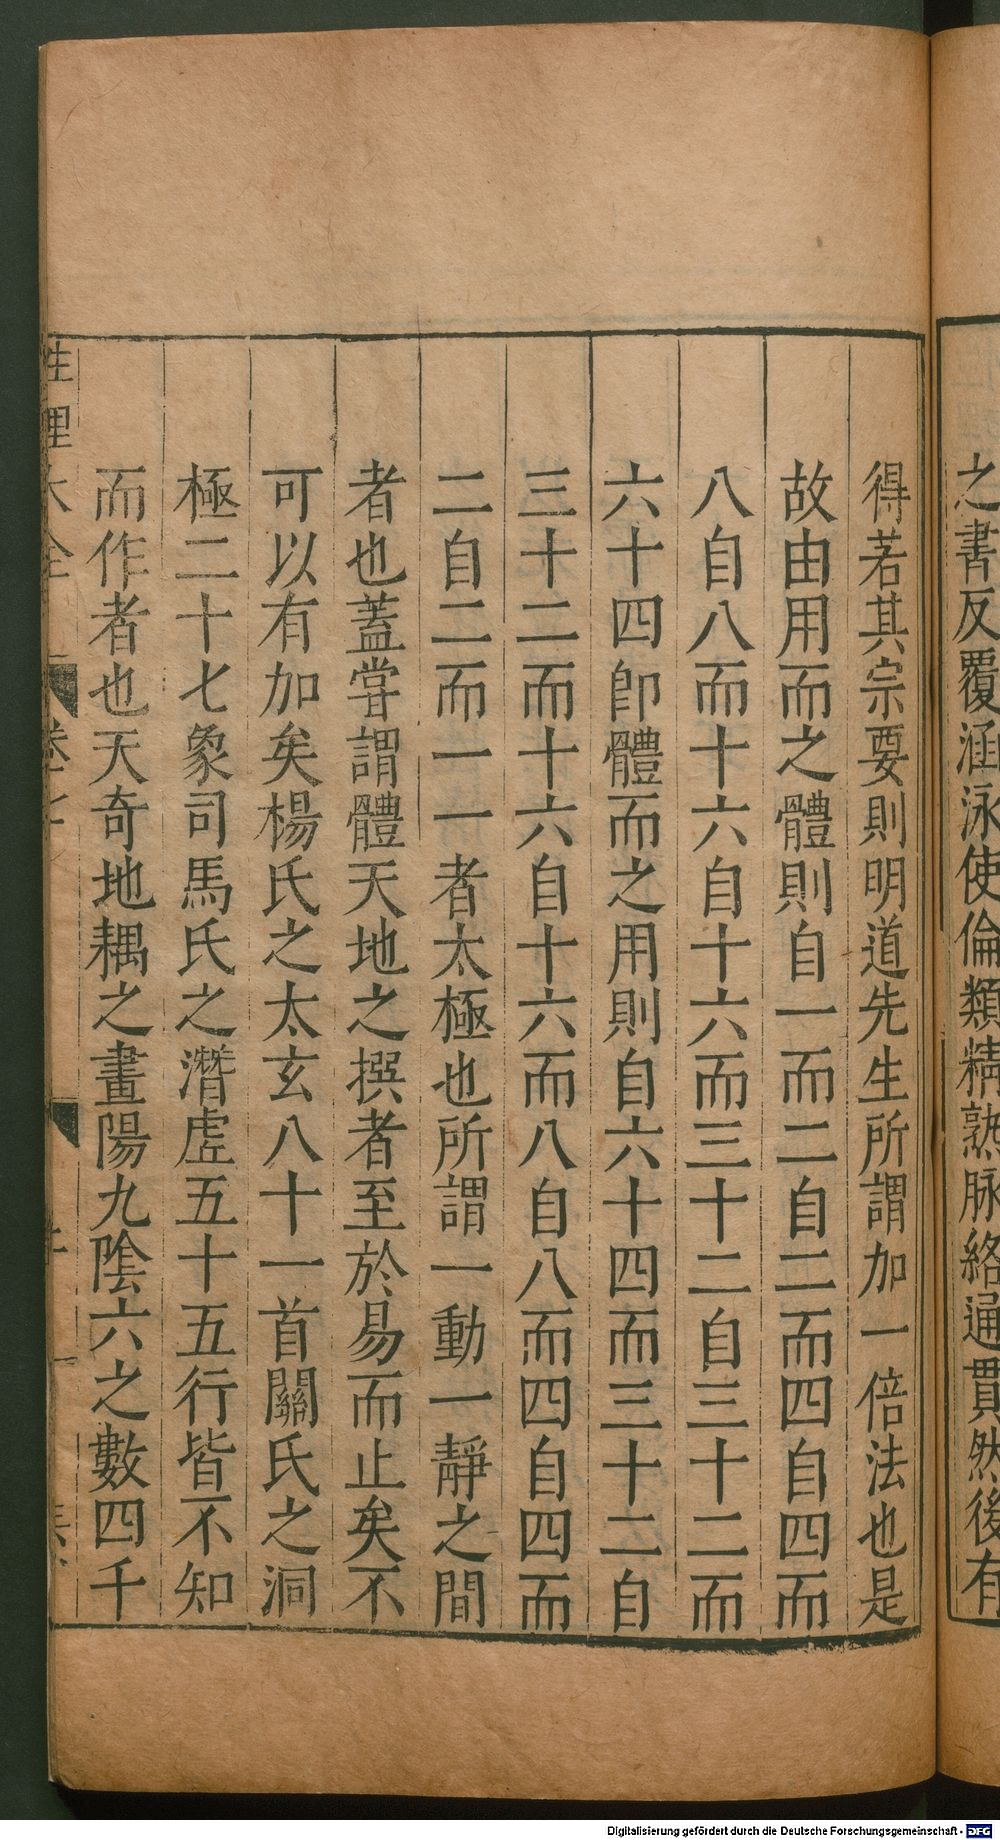 之書反覆涵泳使倫類精熟脉絡通貫然後有
得若其宗要則明道先生所謂加一倍法也是
故由用而之體則自一而二自二而四自四而
八自八而十六自十六而三十二自三十二而
六十四卽體而之用則自六十四而三十二自
三十二而十六自十六而八自八而四自四而
二自二而一一者太極也所謂一動一靜之間
者也蓋甞謂體天地之撰者至於易而止矣不
可以有加矣楊氏之太玄八十一首關氏之洞
極二十七象司馬氏之潛虛五十五行皆不知
而作者也天奇地耦之畫陽九陰六之數四千
性理大全
Digitalisierung gefördert durch die Deutsche Forschungsgemeinschaft - DFG